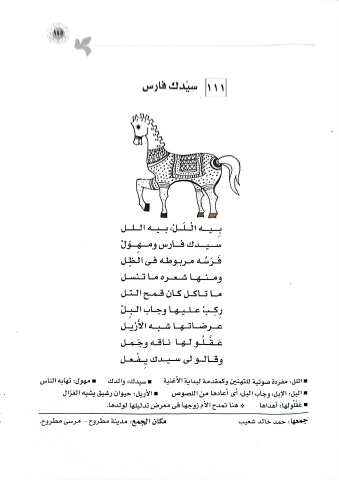 ١١٥
١١١ سيّدك فارس
بيه الْلَلْ، بيه اللل
سيدك فارس ومهوِلْ
فَرَسُه مربوطه فى الظِل
ومنها شعره ما تنسل
ما تاكل كان قمح التل
ركِبْ عليها وجاب البِل
عرضاتها شبه الأرْيل
عقَّلُو لها ناقه وجَمل
وقالو لى سيدك يفْعل
▪ اللل: مفردة صوتية للتهنين وكمقدمة لبداية الأغنية ▪ سيدك: والدك ▪ مهول: تهابه الناس
▪ البل: الإبل، وجاب البل، أى أعادها من اللصوص ▪ الأريل: حيوان رشيق يشبه الغزال
▪ عَقَّلُولها: أهداها ❖ هنا تمدح الأم زوجها فى معرض تدليلها لولدها.
جمعها: حمد خالد شعيب مكان الجمع: مدينة مطروح - مرسى مطروح.